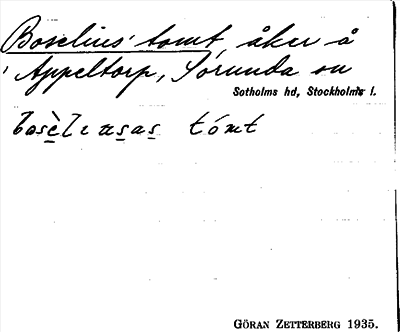 Boselius' tomt, åker å
Appeltorp, Sorunda sn
Sotholms hd, Stockholms l.
bosèlıusas tómt
GÖRAN ZETTERBERG 1935.